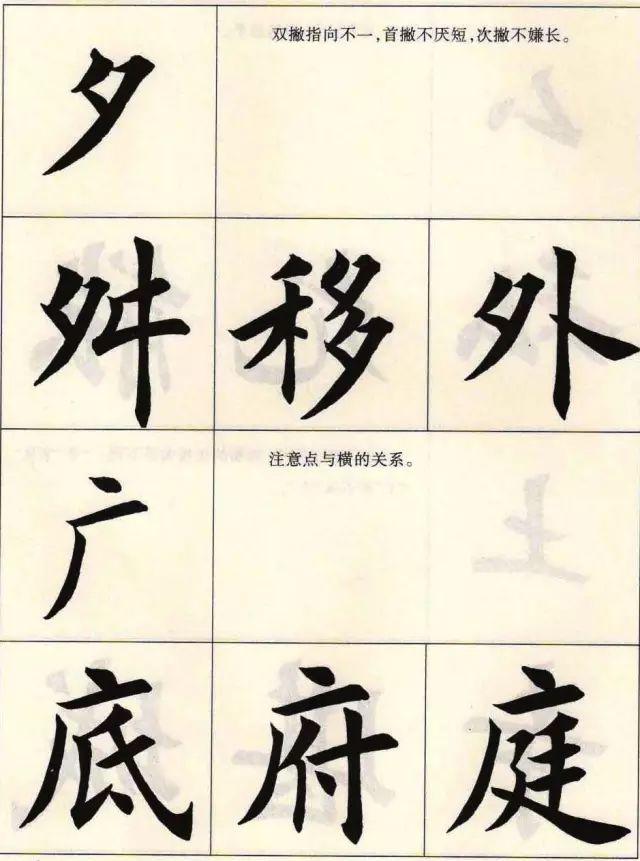 夕
双撇指向不一,首撇不厌短,次撇不嫌长。
舛 移 外
广
注意点与横的关系。
底 府 庭